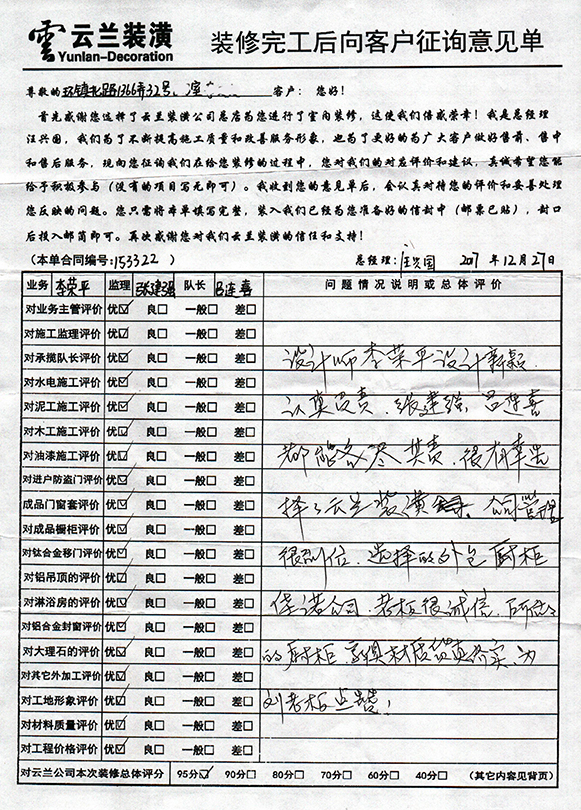 雲 云兰装潢
Yunlan-Decoration
装修完工后向客户征询意见单
尊敬的 环镇北路1366弄32号 客户： 您好！
首先感谢您选择了云兰装潢公司总店为您进行了室内装修，这使我们倍感荣幸！我是总经理
汪兴国，我们为了不断提高施工质量和改善服务形象，也为了更好的为广大客户做好售前、售中
和售后服务，现向您征询我们在给您装修的过程中，您对我们的对应评价和建议，真诚希望您能
给予积极参与（没有的项目写无即可）。我收到您的意见单后，会认真对待您的评价和妥善处理
您反映的问题。您只需将本单填写完整，装入我们已经为您准备好的信封中（邮票已贴），封口
后投入邮筒即可。再次感谢您对我们云兰装潢的信任和支持！
（本单合同编号：153322 ） 总经理：汪兴国 2017 年 12 月 27 日
业务 李荣平 监理 张建强 队长 吕连喜 问题情况说明或总体评价
对业务主管评价 优☑ 良□ 一般□ 差□
对施工监理评价 优☑ 良□ 一般□ 差□
对承揽队长评价 优☑ 良□ 一般□ 差□ 设计师李荣平设计新颖.
对水电施工评价 优☑ 良□ 一般□ 差□
对泥工施工评价 优☑ 良□ 一般□ 差□ 认真负责. 张建强. 吕连喜
对木工施工评价 优☑ 良□ 一般□ 差□
对油漆施工评价 优☑ 良□ 一般□ 差□ 都能各尽其责. 很有幸选
对进户防盗门评价 优☑ 良□ 一般□ 差□
成品门窗套评价 优☑ 良□ 一般□ 差□ 择了云兰装潢 公司管理
对成品橱柜评价 优☑ 良□ 一般□ 差□
对钛合金移门评价 优☑ 良□ 一般□ 差□ 很到位. 选择的外包厨柜
对铝吊顶的评价 优☑ 良□ 一般□ 差□
对淋浴房的评价 优☑ 良□ 一般□ 差□ 佳诺公司. 老板很诚信.
对铝合金封窗评价 优☑ 良□ 一般□ 差□
对大理石的评价 优☑ 良□ 一般□ 差□ 的厨柜. 家俱材质货真价实. 为
对其它外加工评价 优☑ 良□ 一般□ 差□
对工地形象评价 优☑ 良□ 一般□ 差□ 刘老板点赞！
对材料质量评价 优☑ 良□ 一般□ 差□
对工程价格评价 优☑ 良□ 一般□ 差□
对云兰公司本次装修总体评分 95分☑ 90分□ 80分□ 70分□ 60分□ 40分□ （其它内容见背页）